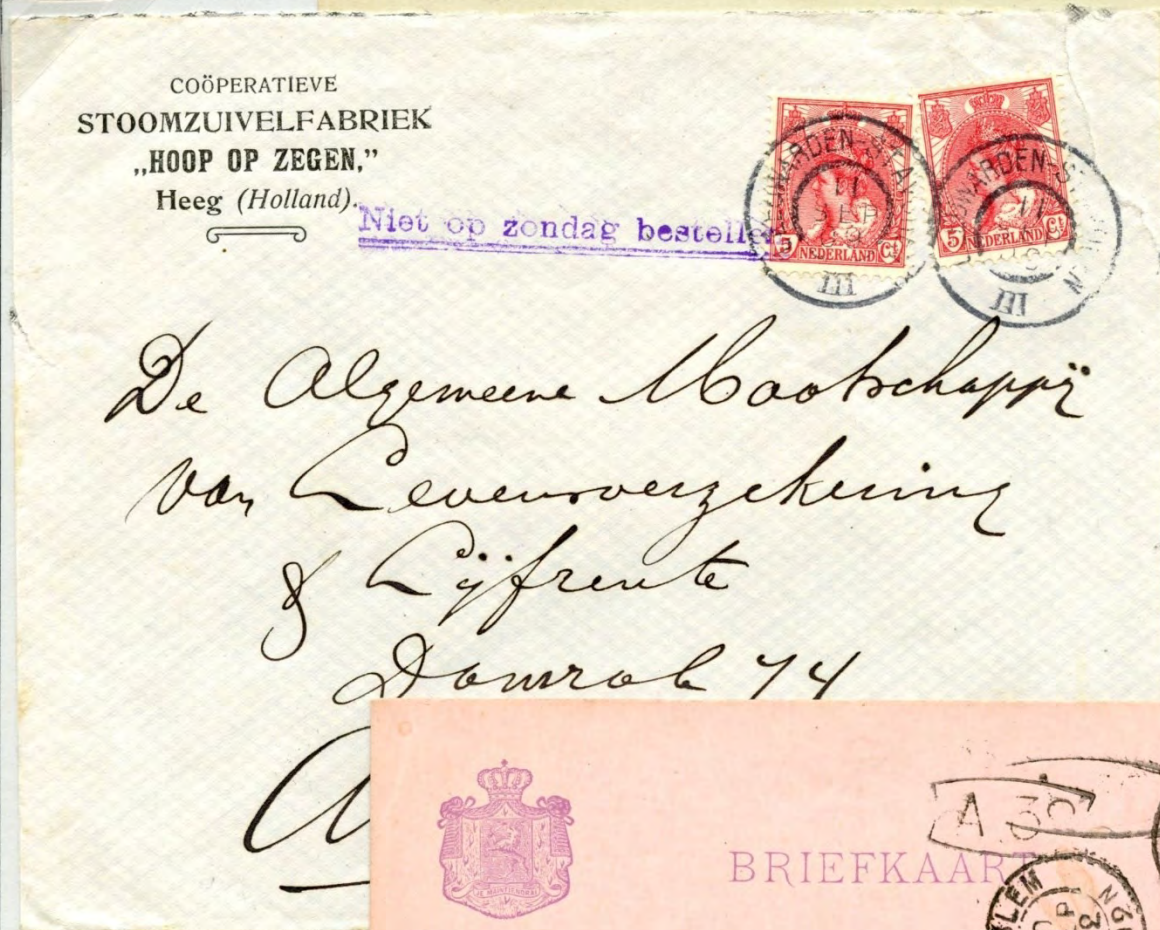 COÖPERATIEVE
STOOMZUIVELFABRIEK
„HOOP OP ZEGEN,”
Heeg (Holland).
Niet op zondag bestell
5 NEDERLAND Ct
5 NEDERLAND Ct
11
SEP
III
11
III
De Algemeene Maatschappij
van Levensverzekering
& Lijfrente
Damrak 74
JE MAINTIENDRAI
A 30
BRIEFKAART